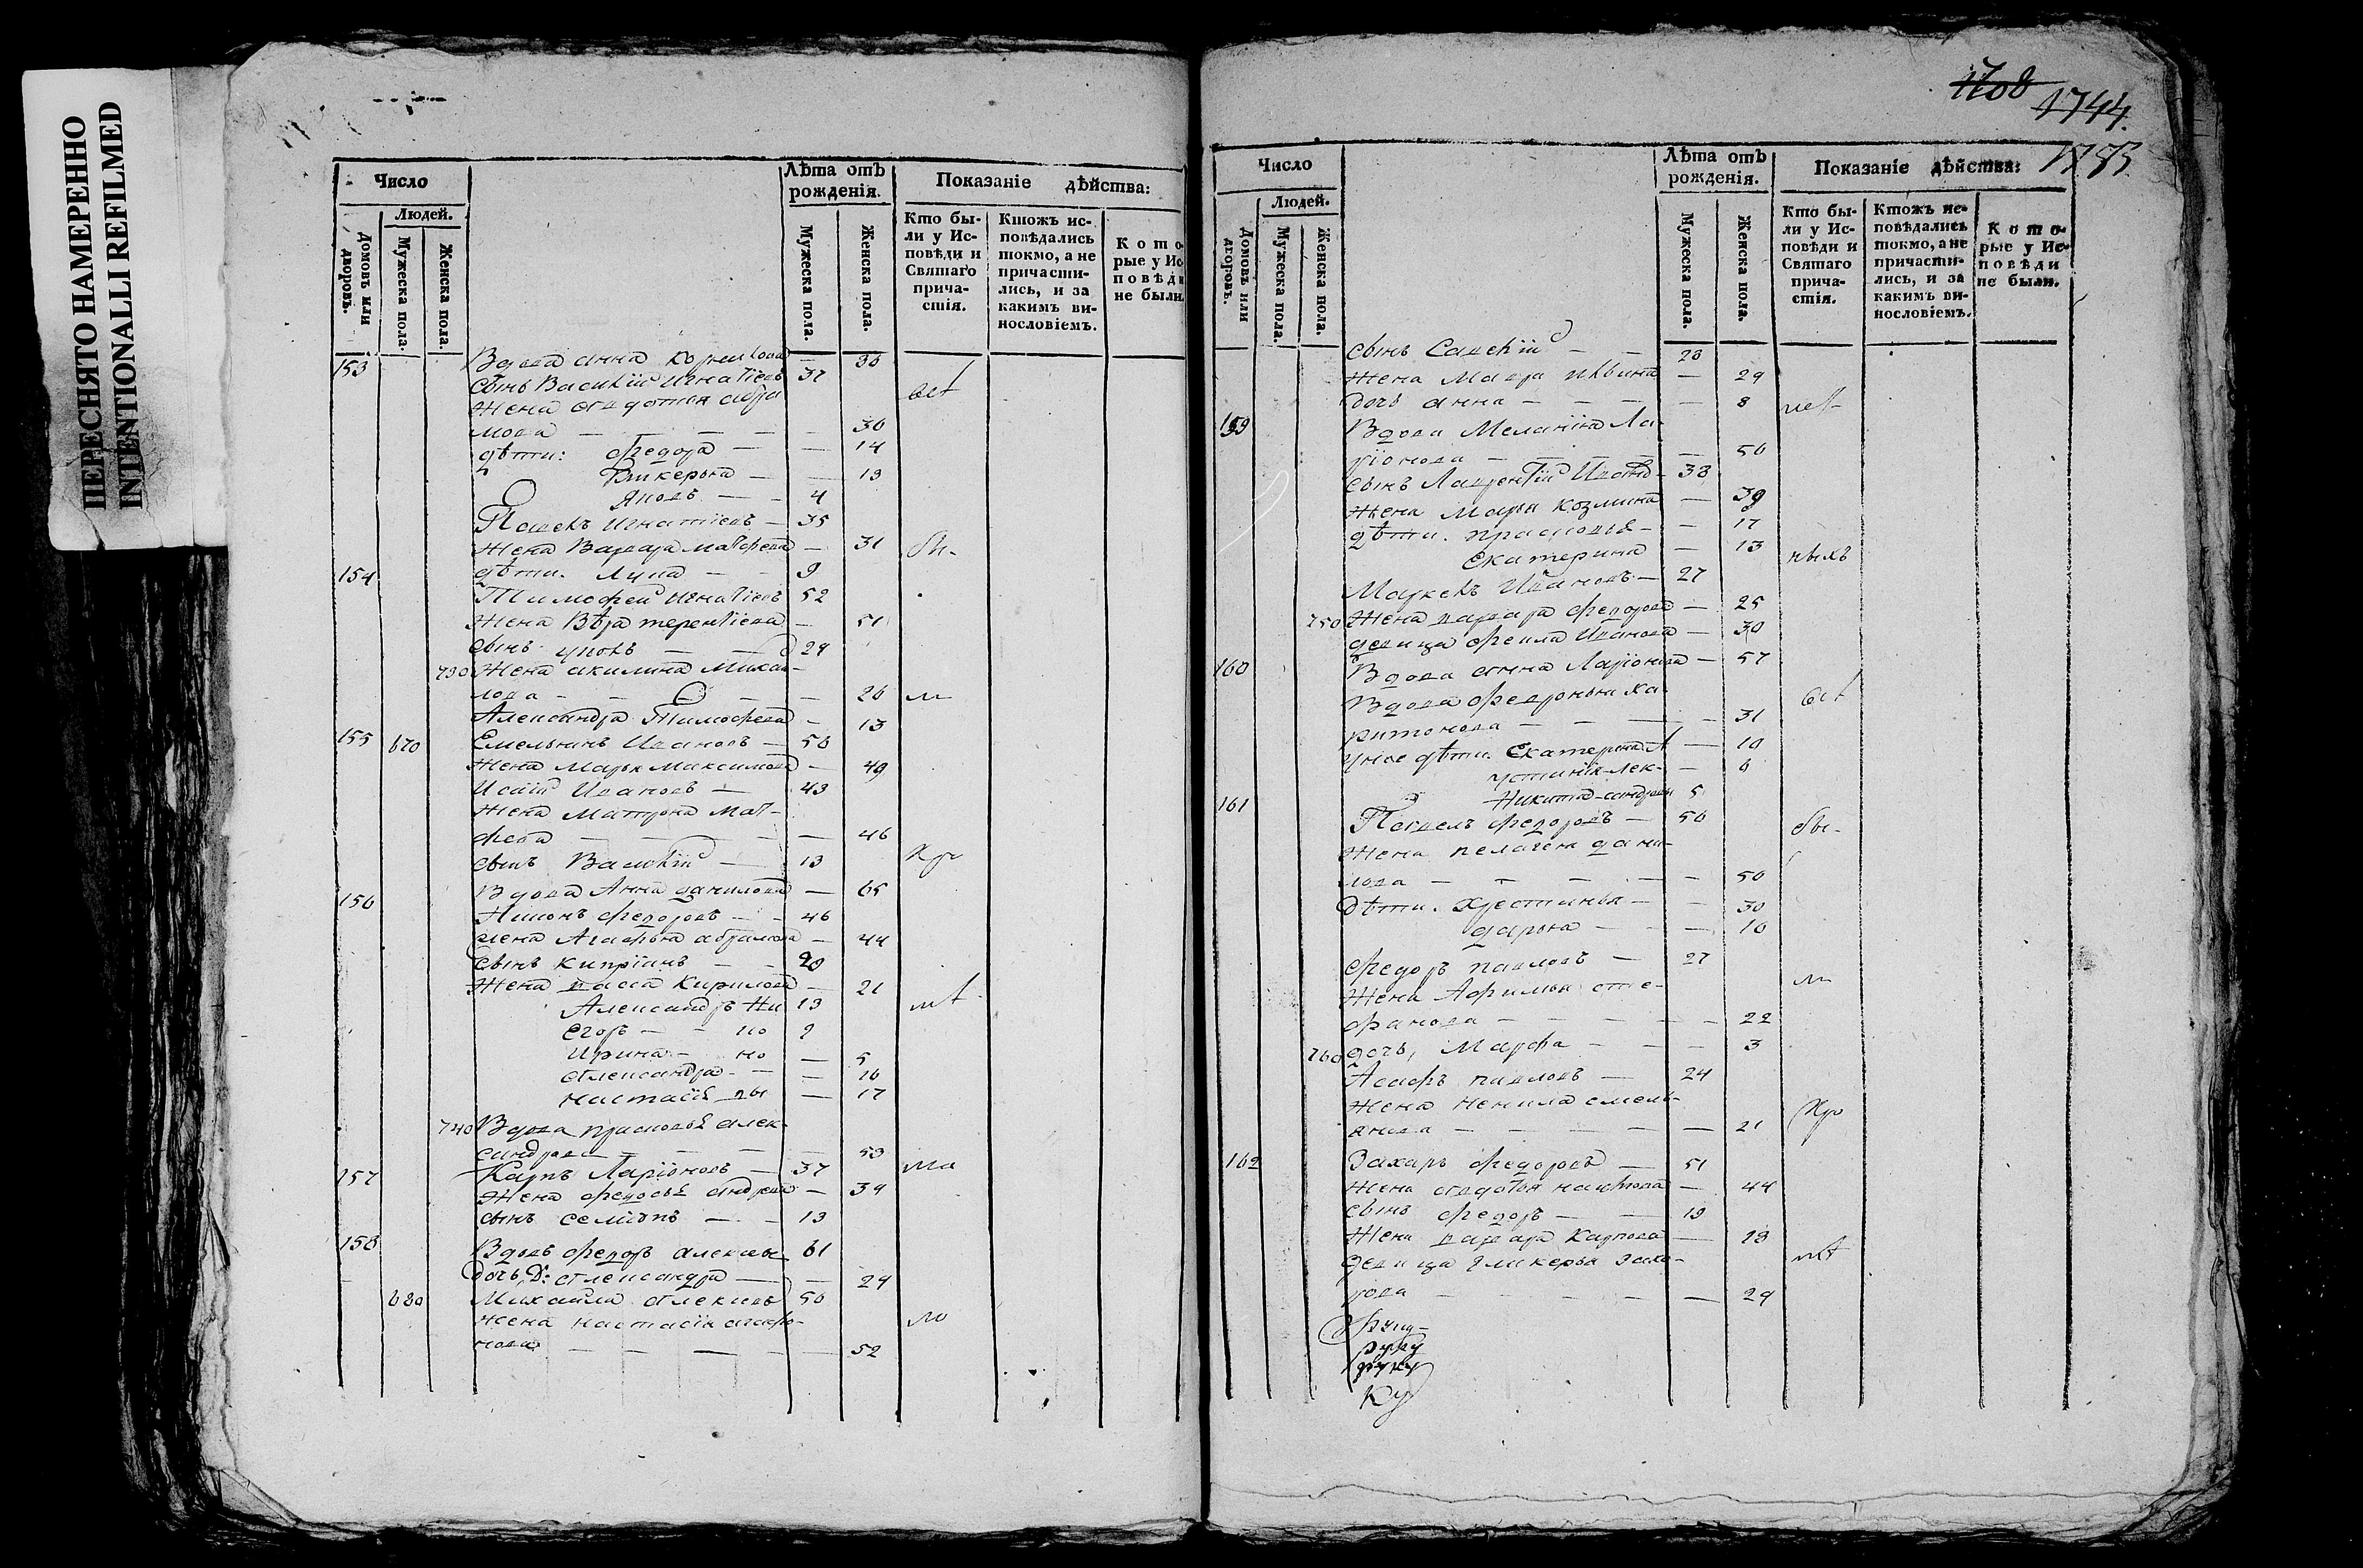 ПЕРЕСНЯТО НАМЕРЕННО
INTENTIONALLI REFILMED
Число
Лѣта отъ рожденія.
Показаніе дѣйства:
Людей.
Домовъ или дворовъ.
Мужеска пола.
Женска пола.
Мужеска пола.
Женска пола.
Кто были у Исповѣди и Святаго причастія.
Ктожъ исповѣдались токмо, а не причастились, и за какимъ винословіемъ.
Которые у Исповѣди не были.
153 Вдова анна
сынъ Василій Игнатіевъ 37
жена авдотья абра
мова — 36
дѣти: федора — 14
Гликерья — 13
Яковъ — 4
Павелъ Игнатіевъ — 35
жена Варвара матфеева — 31
154 дѣти. Лука — 9
Тимофей Игнатіевъ 52
жена Вѣра терентіева — 51
сынъ 29
730 жена акилина Михай-
лова — 26
Александра Тимофеева — 13
155 670 Емельянъ Ивановъ — 50
жена Марья Максимова — 49
Исаій Ивановъ — 43
жена Матрона Мат-
феева — 46
сынъ Василій — 13
156 Вдова Анна данилова — 65
федоровъ — 46
жена Агафья абрамова — 44
сынъ Кипріанъ — 20
жена васса Кирилова — 21
Александръ Ни 13
Егоръ — ко 9
Ирина — но — 5
Александра — 16
настасія вы — 17
740 Вдова прасковья алек-
сандрова — 53
157 Карпъ Ларіоновъ — 37
жена федосья андреева — 39
сынъ семіонъ — 13
158 Вдовъ федоръ алексѣе 61
дочь, Д: Александра — 29
680 Михайла Алексѣевъ 50
жена настасія агафо-
нова — 52
1708
1744.
1785
Число
Лѣта отъ рожденія.
Показаніе дѣйства:
Людей.
Домовъ или дворовъ.
Мужеска пола.
Женска пола.
Мужеска пола.
Женска пола.
Кто были у Исповѣди и Святаго причастія.
Ктожъ исповѣдались токмо, а не причастились, и за какимъ винословіемъ.
Которые у Исповѣди не были.
сынъ Савелій — 28
жена Мавра — 29
дочь анна — 8
159 Вдова Меланія Ла-
ріонова — 50
сынъ Лаврентій Ивановъ 33
жена Марья Козмина — 39
дѣти. прасковья — 17
Екатерина — 13
Маркелъ Ивановъ — 27
750 жена варвара федорова — 25
девица фекла Иванова — 30
160 Вдова анна Ларіонова — 57
Вдова февронья ха-
ритонова — 31
унее дѣти. Екатерина А — 10
устинія лек — 6
Никита сандровы 5
161 Павелъ федоровъ — 50
жена пелагея дани-
лова — 50
Дѣти. Хрестинья — 30
дарья — 10
федоръ павловъ — 27
жена Афимья сте-
фанова — 22
760 дочь, Марфа — 3
Асафъ павловъ — 24
жена ненила емель-
янова — 21
162 Захаръ федоровъ — 51
жена авдотья — 44
сынъ федоръ — 19
жена варвара Карпова —
девица гликерья Заха-
рова — 29
руку